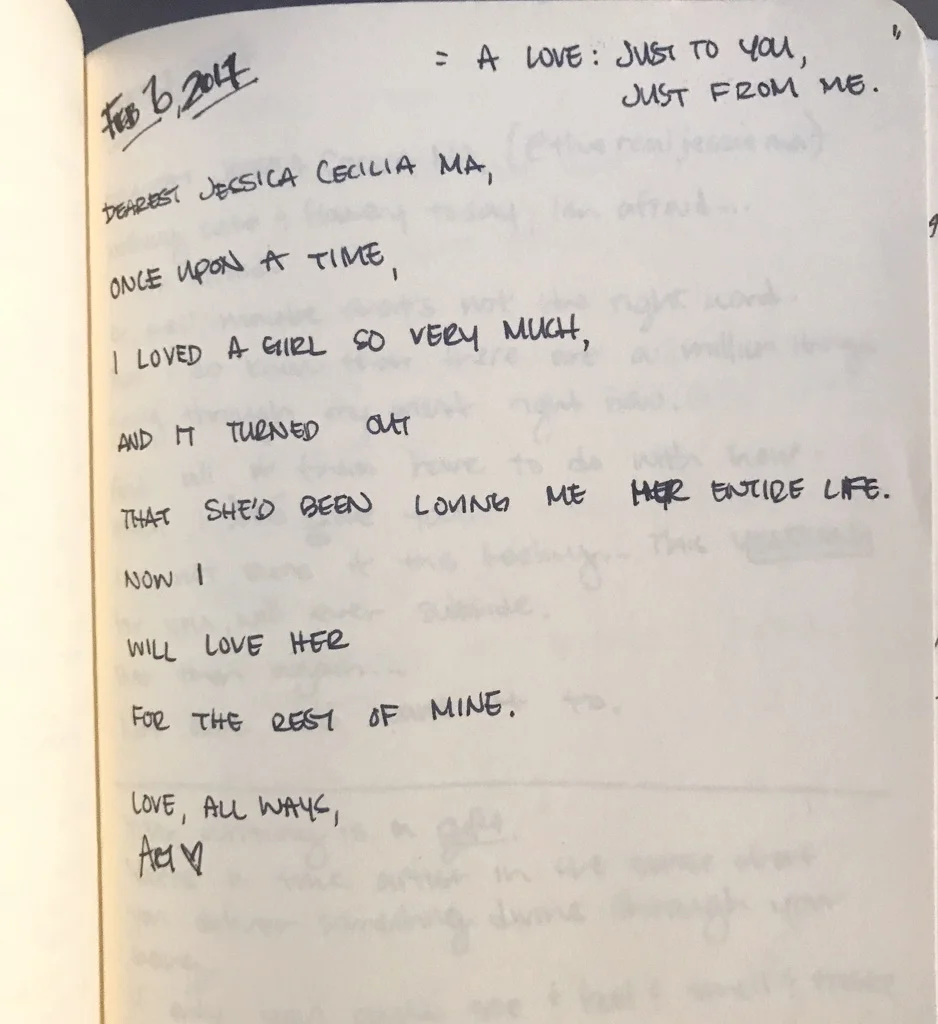 FEB 6, 2017
= A LOVE: JUST TO YOU,
JUST FROM ME.
DEAREST JESSICA CECILIA MA,
ONCE UPON A TIME,
I LOVED A GIRL SO VERY MUCH,
AND IT TURNED OUT
THAT SHE'D BEEN LOVING ME HER ENTIRE LIFE.
NOW I
WILL LOVE HER
FOR THE REST OF MINE.
LOVE, ALL WAYS,